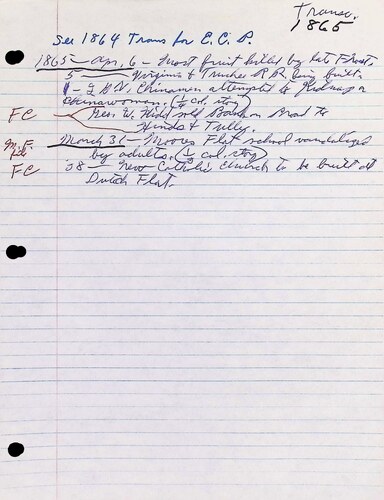 Trans.
1865
See 1864 Trans for E.C.P.
1865 - Apr. 6 - Most fruit killed by late frost.
5 - Virginia & Truckee R.R. being built.
1 - Chinamen attempted to kidnap a
Chinawoman. (1/2 col. story)
FC Geo. W. Kidd sold Road to
Hinds & Tully.
M.F. file March 31 - Moores Flat school vandalized
by adults. (1/2 col. story)
FC 28 - New Catholic Church to be built at
Dutch Flat.